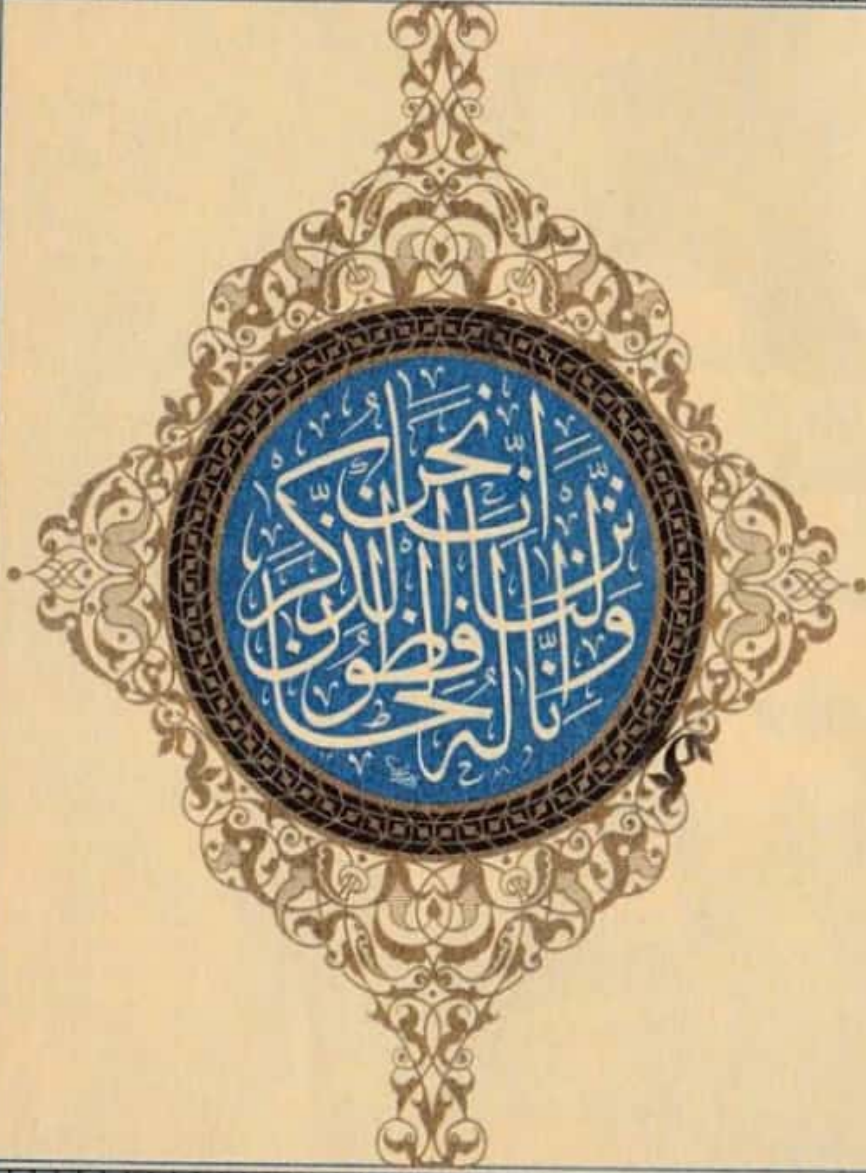 إنا نحن نزلنا الذكر وإنا له لحافظون